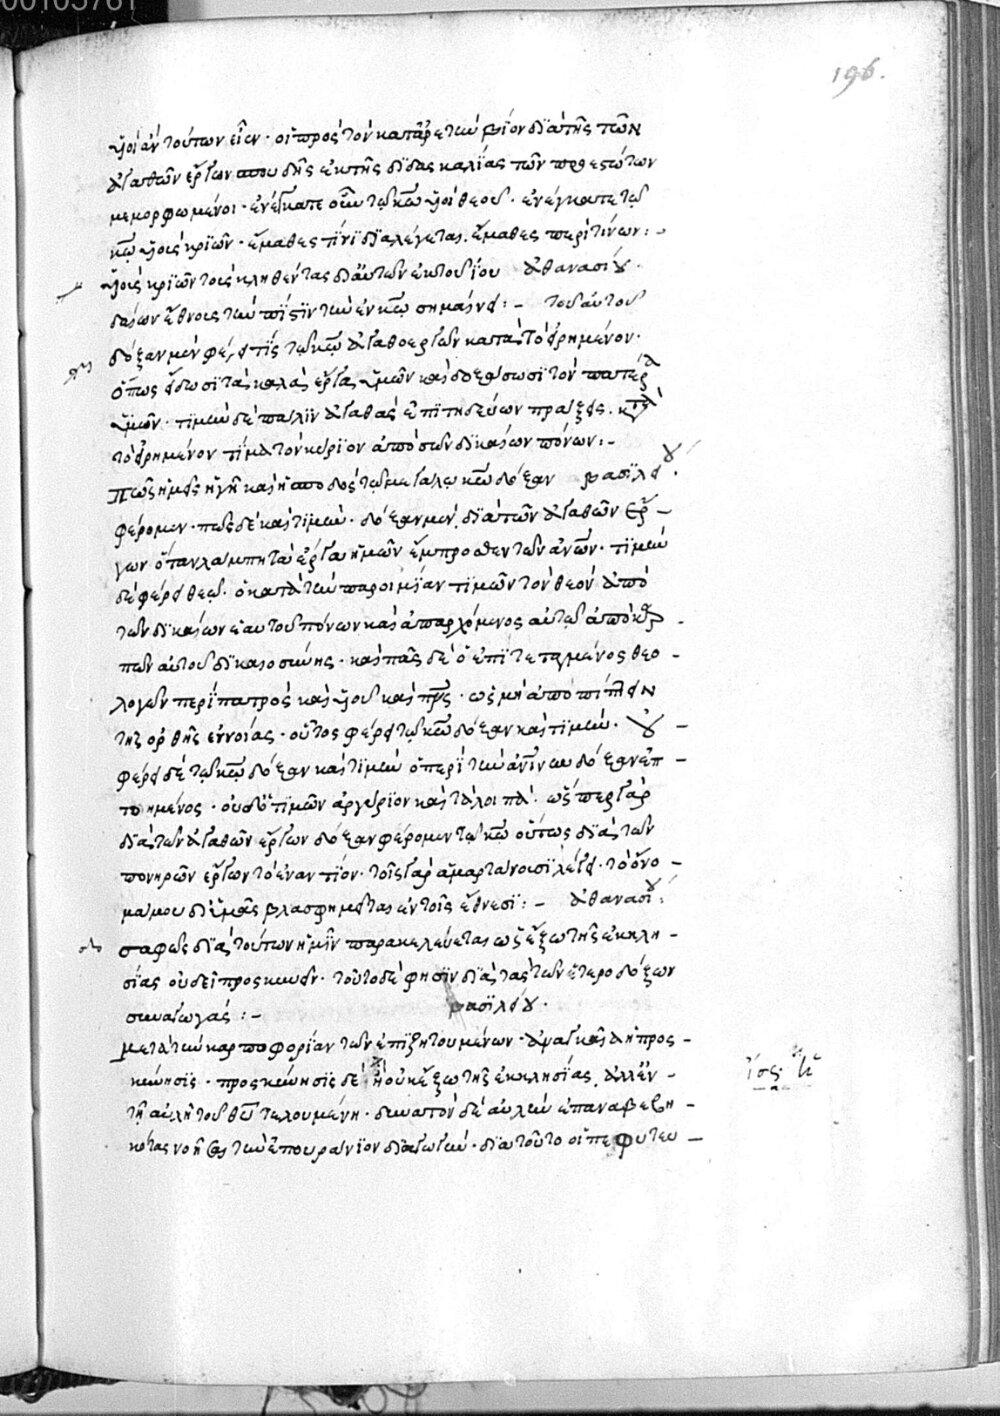 00105761
196.
υἱοὶ ἂν τούτων εἶεν · οἱ πρὸς τὸν κατ' ἀρετὴν βίον διὰ τῆς τῶν
ἀγαθῶν ἔργων σπουδῆς ἐκ τῆς διδασκαλίας τῶν προεστώτων
μεμορφωμένοι · ἐνέγκατε οὖν τῷ κω υἱοὶ θεοῦ · ἐνέγκατε τῷ
κω υἱοὺς κριῶν · ἔμαθες τίνι διαλέγεται · ἔμαθες περὶ τίνων : -
υἱοὺς κριῶν τοὺς κληθέντας δι' αὐτῶν ἐκ τοῦ ἰου ἀθανασίου ·
δαίων ἔθνους τὴν πίστιν τὴν ἐν κω σημαίνει : - τοῦ αὐτοῦ
δόξαν μὲν φέρει τίς τῷ κω ἀγαθοεργῶν κατὰ τὸ εἰρημένον ·
ὅπως ἴδωσι τὰ καλὰ ἔργα ὑμῶν καὶ δοξάσωσι τὸν πατέρα
ὑμῶν · τιμὴν δὲ πάλιν ἀγαθὰς ἐπιτηδεύων πράξεις · κατὰ
τὸ εἰρημένον τίμα τὸν κύριον ἀπὸ σῶν δικαίων πόνων : -
πῶς ἡμεῖς ἡ γῆ καὶ ἡ σποδὸς τῷ μεγάλῳ κω δόξαν βασιλείου ·
φέρομεν · πῶς δὲ καὶ τιμήν · δόξαν μὲν, διὰ τῶν ἀγαθῶν ἔρ -
γων ὅταν λάμπῃ τὰ ἔργα ἡμῶν ἔμπροσθεν τῶν ἀνων · τιμὴν
δὲ φέρει θεῷ · ὁ κατὰ τὴν παροιμίαν τιμῶν τὸν θεὸν ἀπὸ
τῶν δικαίων ἑαυτοῦ πόνων καὶ ἀπαρχόμενος αὐτῷ ἀπὸ καρ -
πῶν αὐτοῦ δικαιοσύνης · καὶ πᾶς δὲ ὁ ἐπιτεταγμένος θεο -
λογεῖν περὶ πατρὸς καὶ υἱοῦ καὶ πνς · ὡς μὴ ἀποπίπτειν
τῆς ὀρθῆς ἐννοίας · οὗτος φέρει τῷ κω δόξαν καὶ τιμήν · οὐ -
φέρει δὲ τῷ κω δόξαν καὶ τιμὴν ὁ περὶ τὴν ἀνίνην δόξαν ἐπ -
τοημένος · οὐδ' ὁ τιμῶν ἀργύριον καὶ τὰ λοιπά · ὥσπερ γὰρ
διὰ τῶν ἀγαθῶν ἔργων δόξαν φέρομεν τῷ κω οὕτως διὰ τῶν
πονηρῶν ἔργων τὸ ἐναντίον · τοῖς γὰρ ἁμαρτάνουσι λέγει · τὸ ὄνο -
μά μου δι' ὑμᾶς βλασφημεῖται ἐν τοῖς ἔθνεσι : - ἀθανασίου :
σαφῶς διὰ τούτων ἡμῖν παρακελεύεται ὡς ἔξω τῆς ἐκκλη -
σίας οὐ δεῖ προσκυνεῖν · τοῦτο δέ φησιν διὰ τὰς τῶν ἑτεροδόξων
συναγωγάς : - βασιλείου ·
μετὰ τὴν καρποφορίαν τῶν ἐπιζητουμένων · ἀναγκαία ἡ προς -
κύνησις · προσκύνησις δὲ ἡ οὐκ ἔξω τῆς ἐκκλησίας, ἀλλ' ἐν -
τῇ αὐλῇ τοῦ θυ τελουμένη · δυνατὸν δὲ αὐλὴν ἐπαναβεβη -
κότας νοῆσαι τὴν ἐπουράνιον διαγωγήν · διὰ τοῦτο οἱ πεφυτευ -